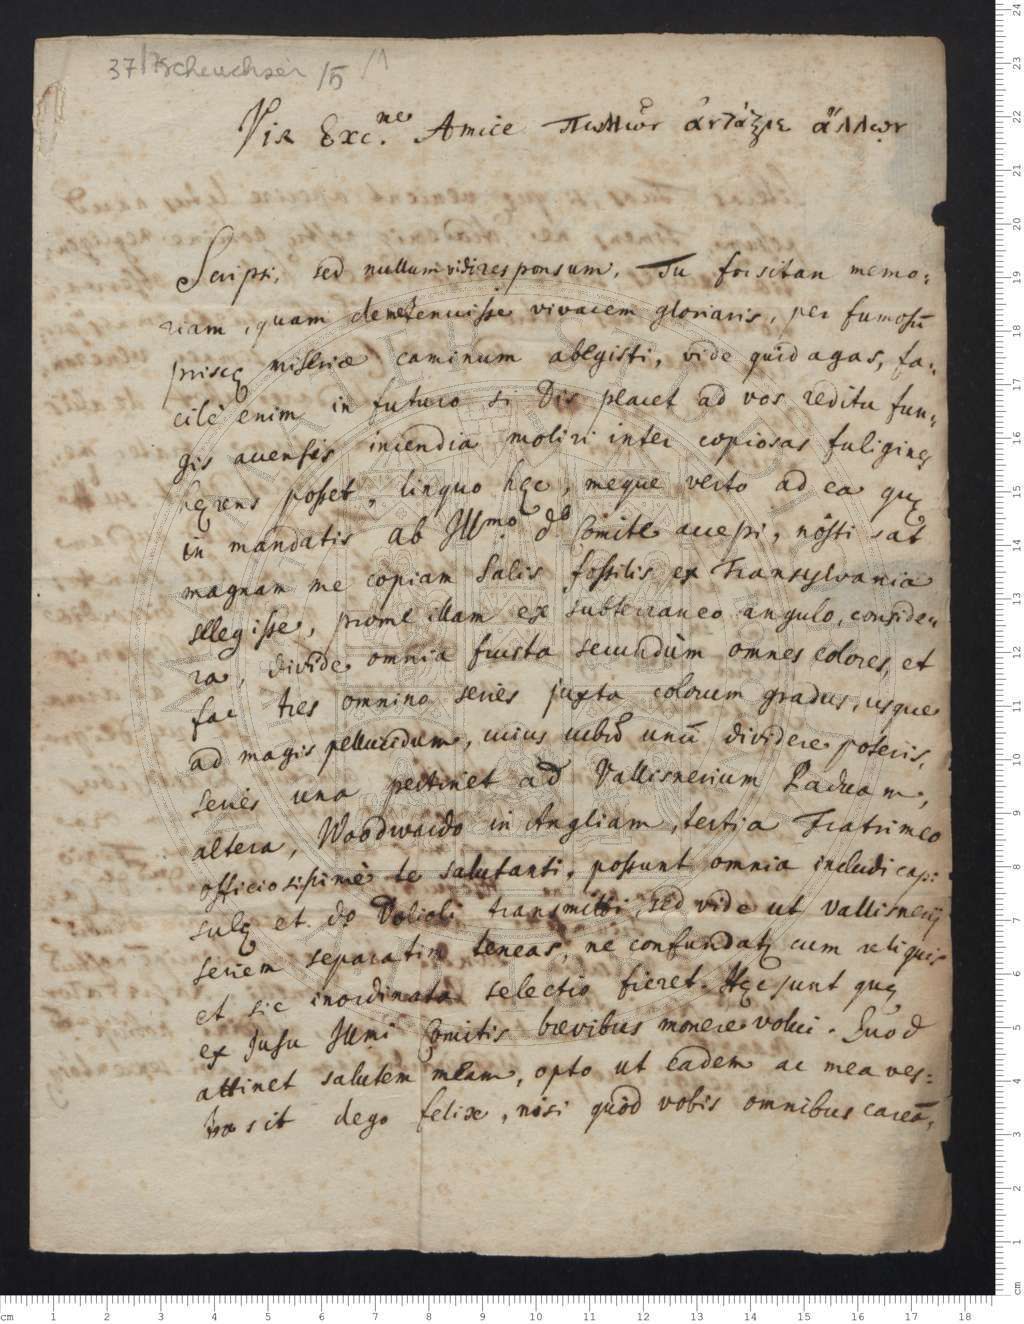 37/Scheuchzer /5 /1
Vir Exc.ne Amice πολλῶν ἀντάξιε ἄλλων
Scripsi, sed nullum vidi responsum. Tu forsitan memo:
riam, quam demetenuisse vivacem gloriaris, per fumosū
priscę miseriæ caminum ablegisti, vide quid agas, fa:
cile enim in futuro si Dis placet ad vos reditu fun:
gis avensis incendia moliri inter copiosas fuligines
hęrens posset, linquo hęc, meque verto ad ea quę
in mandatis ab Illmo. do Comite accepi, nôsti sat
magnam me copiam Salis fossilis ex Transylvania
sellegisse, prome illam ex subterraneo angulo, conside:
ra, divide omnia frusta secundùm omnes colores, et
fac tres omnino series juxta colorum gradus, usque
ad magis pellucidum, cuius unū dividere poteris,
series una pertinet ad Vallisnerium Paduam,
altera, Woodwardo in Angliam, tertia Fratri meo
officiosissimè te salutanti, possunt omnia includi cap:
sulę et do transmitti, sed vide ut Vallisnerij
seriem separatim teneas, ne confundatr cum reliquis
et sic inordinata selectio fieret. Hęc sunt quę
ex Jusu Illmi Comitis brevibus monere volui. Quod
attinet salutem meam, opto ut eadem ac mea ves:
tra sit dego felix, nisi quòd vobis omnibus careā,